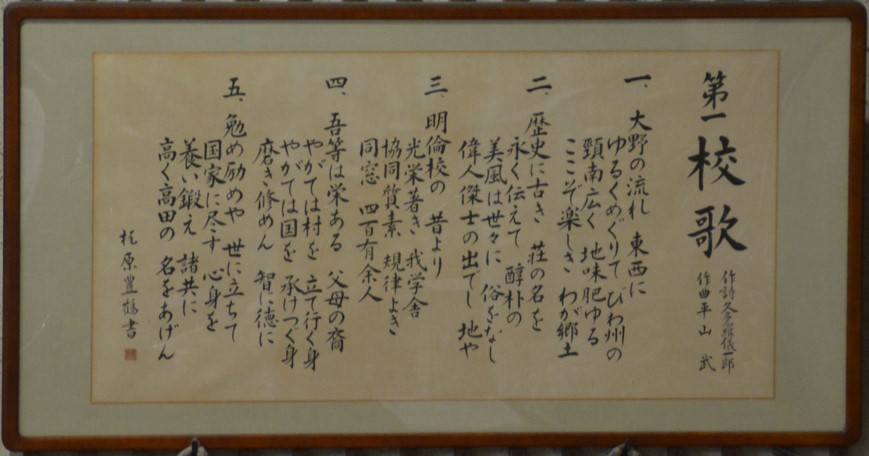 第一校歌
作曲 平山 武
一、大野の流れ 東西に
ゆるくめぐりて びわ州の
頸南広く 地味肥ゆる
ここぞ楽しき わが郷土
二、歴史に古き 荘の名を
永く伝えて 醇朴の
美風は世々に 俗をなし
偉人傑士の出でし 地や
三、明倫校の 昔より
光栄著き 我学舎
協同質素 規律よき
同窓 四百有余人
四、吾等は栄ある 父母の裔
やがては村を 立て行く身
やがては国を 承けつぐ身
磨き修めん 智に徳に
五、勉め励めや 世に立ちて
国家に尽す 心身を
養い鍛え 諸共に
高く高田の 名をあげん
梶原豊鶴書